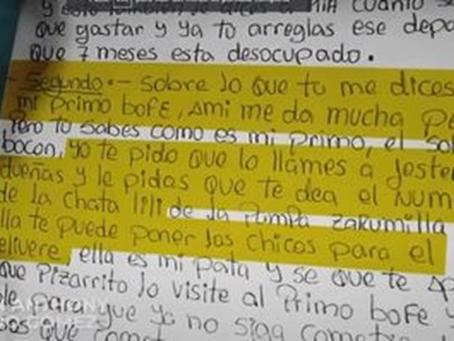 y esto cuanto
que gastar y ya tu arreglas ese depa
que 7 meses esta desocupado.
- Segundo.- Sobre lo que tu me dices
mi primo bofe, ami me da mucha pe
Pero tu sabes como es mi primo, el so
bocon, yo te pido que lo llames a Joste
dueñas y le pidas que te dea el Num
de la chata lili de la Pampa Zarumilla
lla te puede poner los chicos para el
elivere, ella es mi pata y se que te ap
que Pizarrito lo visite al Primo bofe y
ble para que ya no siga
sos que